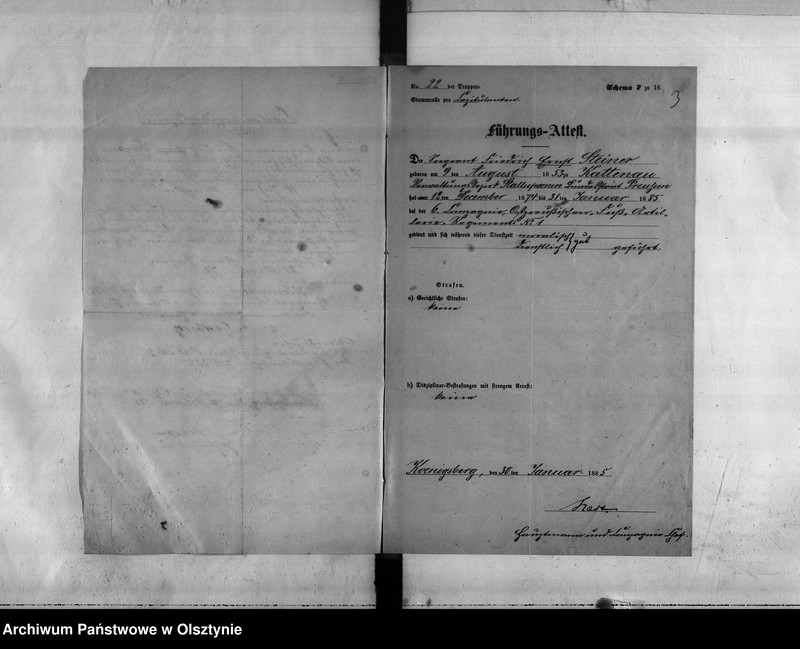 No. 22 der Truppen-
Stammrolle pro Capitulanten.
Schema 7 zu 16.
3
Führungs-Attest.
Der Sergeant Friedrich Ernst Steiner
geboren am 9 ten August 1853 zu Kattenau
Verwaltungs Bezirk Stallupoenen Bundesstaat Preussen
hat vom 12 ten December 1874 bis 31 ten Januar 1885
bei der 6. Compagnie Ostpreußischen Fuß-Artil-
lerie-Regiments No 1
gedient und sich während dieser Dienstzeit moralisch
dienstlich } gut geführt.
Strafen.
a) Gerichtliche Strafen:
keine
b) Disziplinar-Bestrafungen mit strengem Arrest:
keine
Koenigsberg, den 30 ten Januar 1885
Hauptmann und Compagnie Chef.
Archiwum Państwowe w Olsztynie